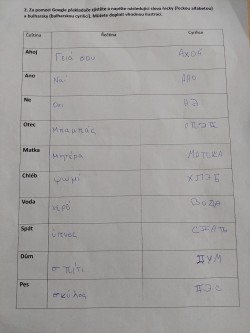 2. Za pomoci Google překladače zjistěte a napište následující slova řecky (řeckou alfabetou)
a bulharsky (bulharskou cyrilicí). Můžete doplnit vhodnou ilustrací.
Čeština Řečtina Cyrilice
Ahoj Γειά σου АХОЙ
Ano Ναί АНО
Ne Οχι НЭ
Otec Μπαμπάς
Matka μητέρα МАТКА
Chléb ψωμί ХЛЭБ
Voda νερό ВОДА
Spát ύπνος СПАТЬ
Dům σπίτι ДУМ
Pes σκύλος ПЭС